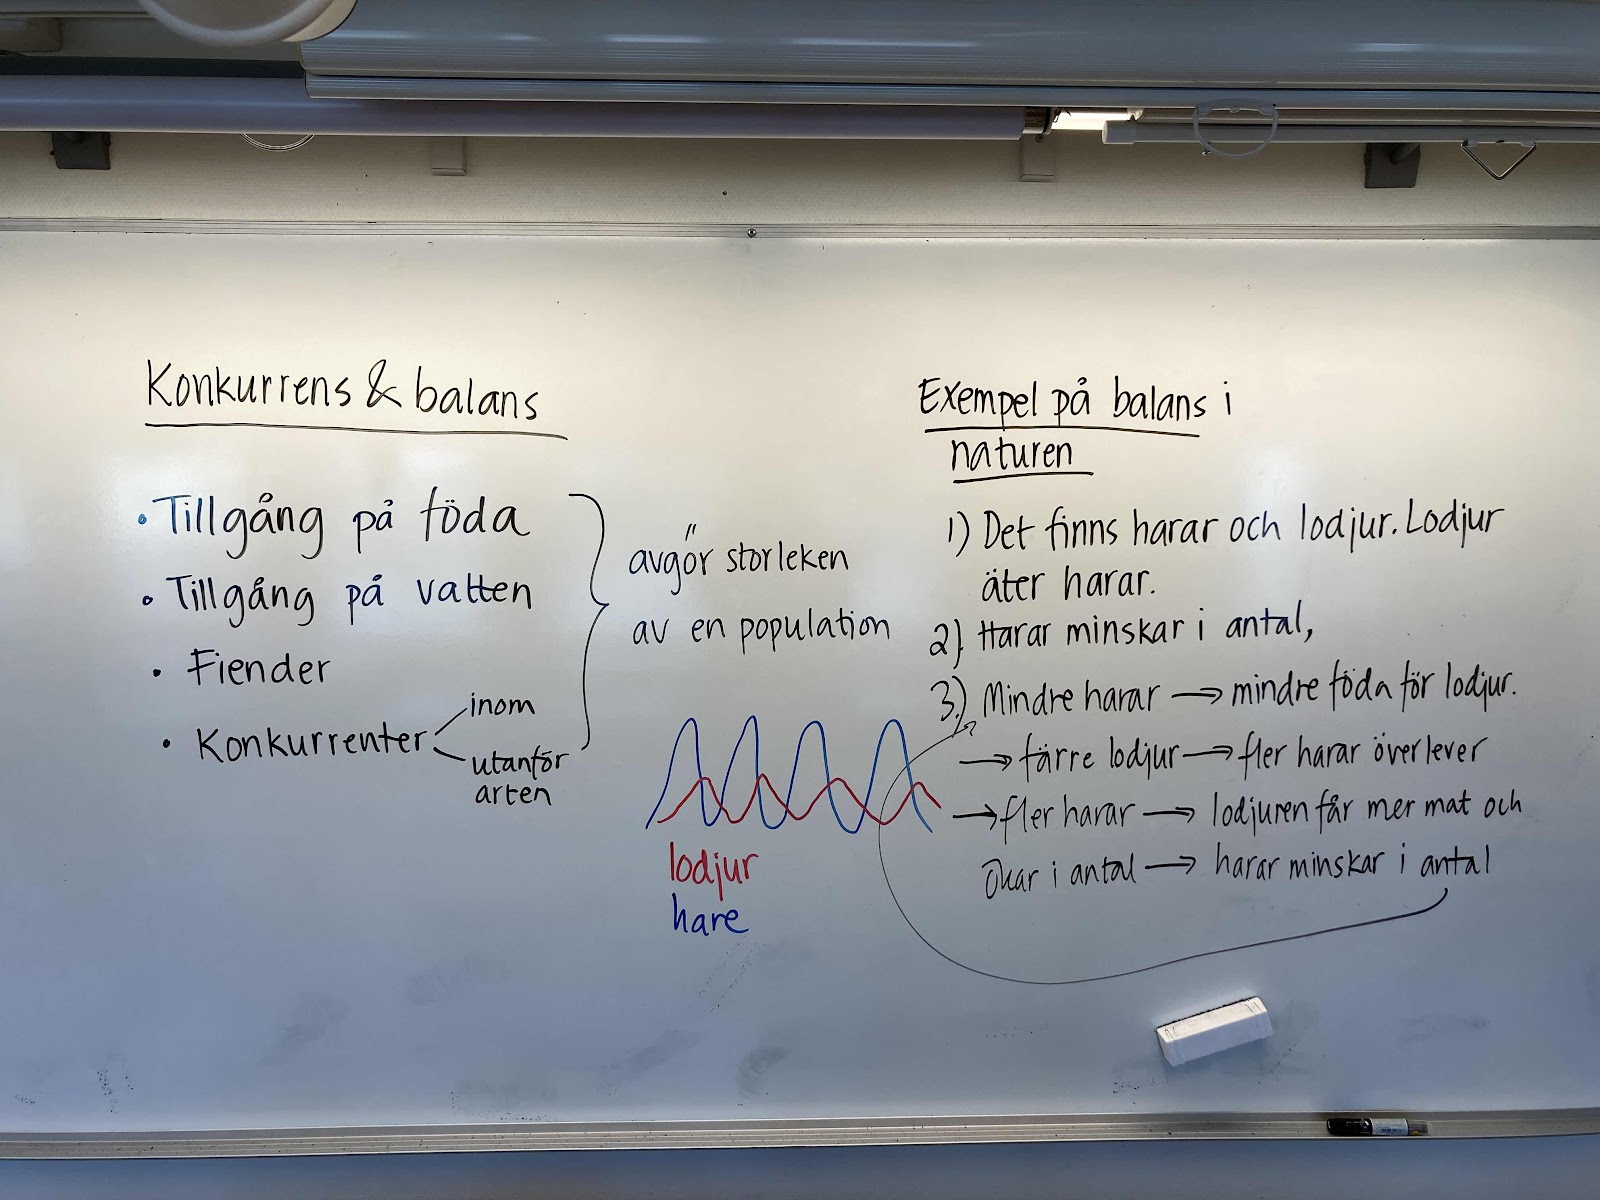 Konkurrens & balans
• Tillgång på föda
• Tillgång på vatten
• Fiender
• Konkurrenter
inom
utanför
arten
avgör storleken
av en population
lodjur
hare
Exempel på balans i
naturen
1) Det finns harar och lodjur. Lodjur
äter harar.
2) Harar minskar i antal,
3) Mindre harar → mindre föda för lodjur.
→ färre lodjur → fler harar överlever
→ fler harar → lodjuren får mer mat och
ökar i antal → harar minskar i antal